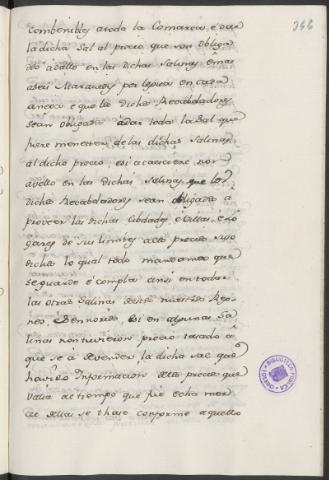 346
Combenibles atoda la Comarca, e dar
la dicha Sal al precio que son obliga
do adallo en las dichas Salinas emas
aseis Maravedis por legua en cada
anega e que los dichos Recabdadores
sean obligados adar toda la Sal que
fuere menester de las dichas Salinas
al dicho precio, e si acaesciere non
avello en las dichas Salinas, que los
dichos Recabdadores sean obligados a
proveer las dichas Cibdades e Villas, e lo
gares de sus limites alos precios suso
dichos lo qual todo mandamos que
se guarde e compla ansi en todas
las otras Salinas destos nuestros Rey
nos, e Sennorios, e si en algunas Sa
linas non tuvieron precio tasado a
que se a de vender la dicha sal que
havido Informacion delos precios que
valia al tiempo que fue echa mer
ced dellas se thase conforme aquello
BIBLIOTECA PUBLICA